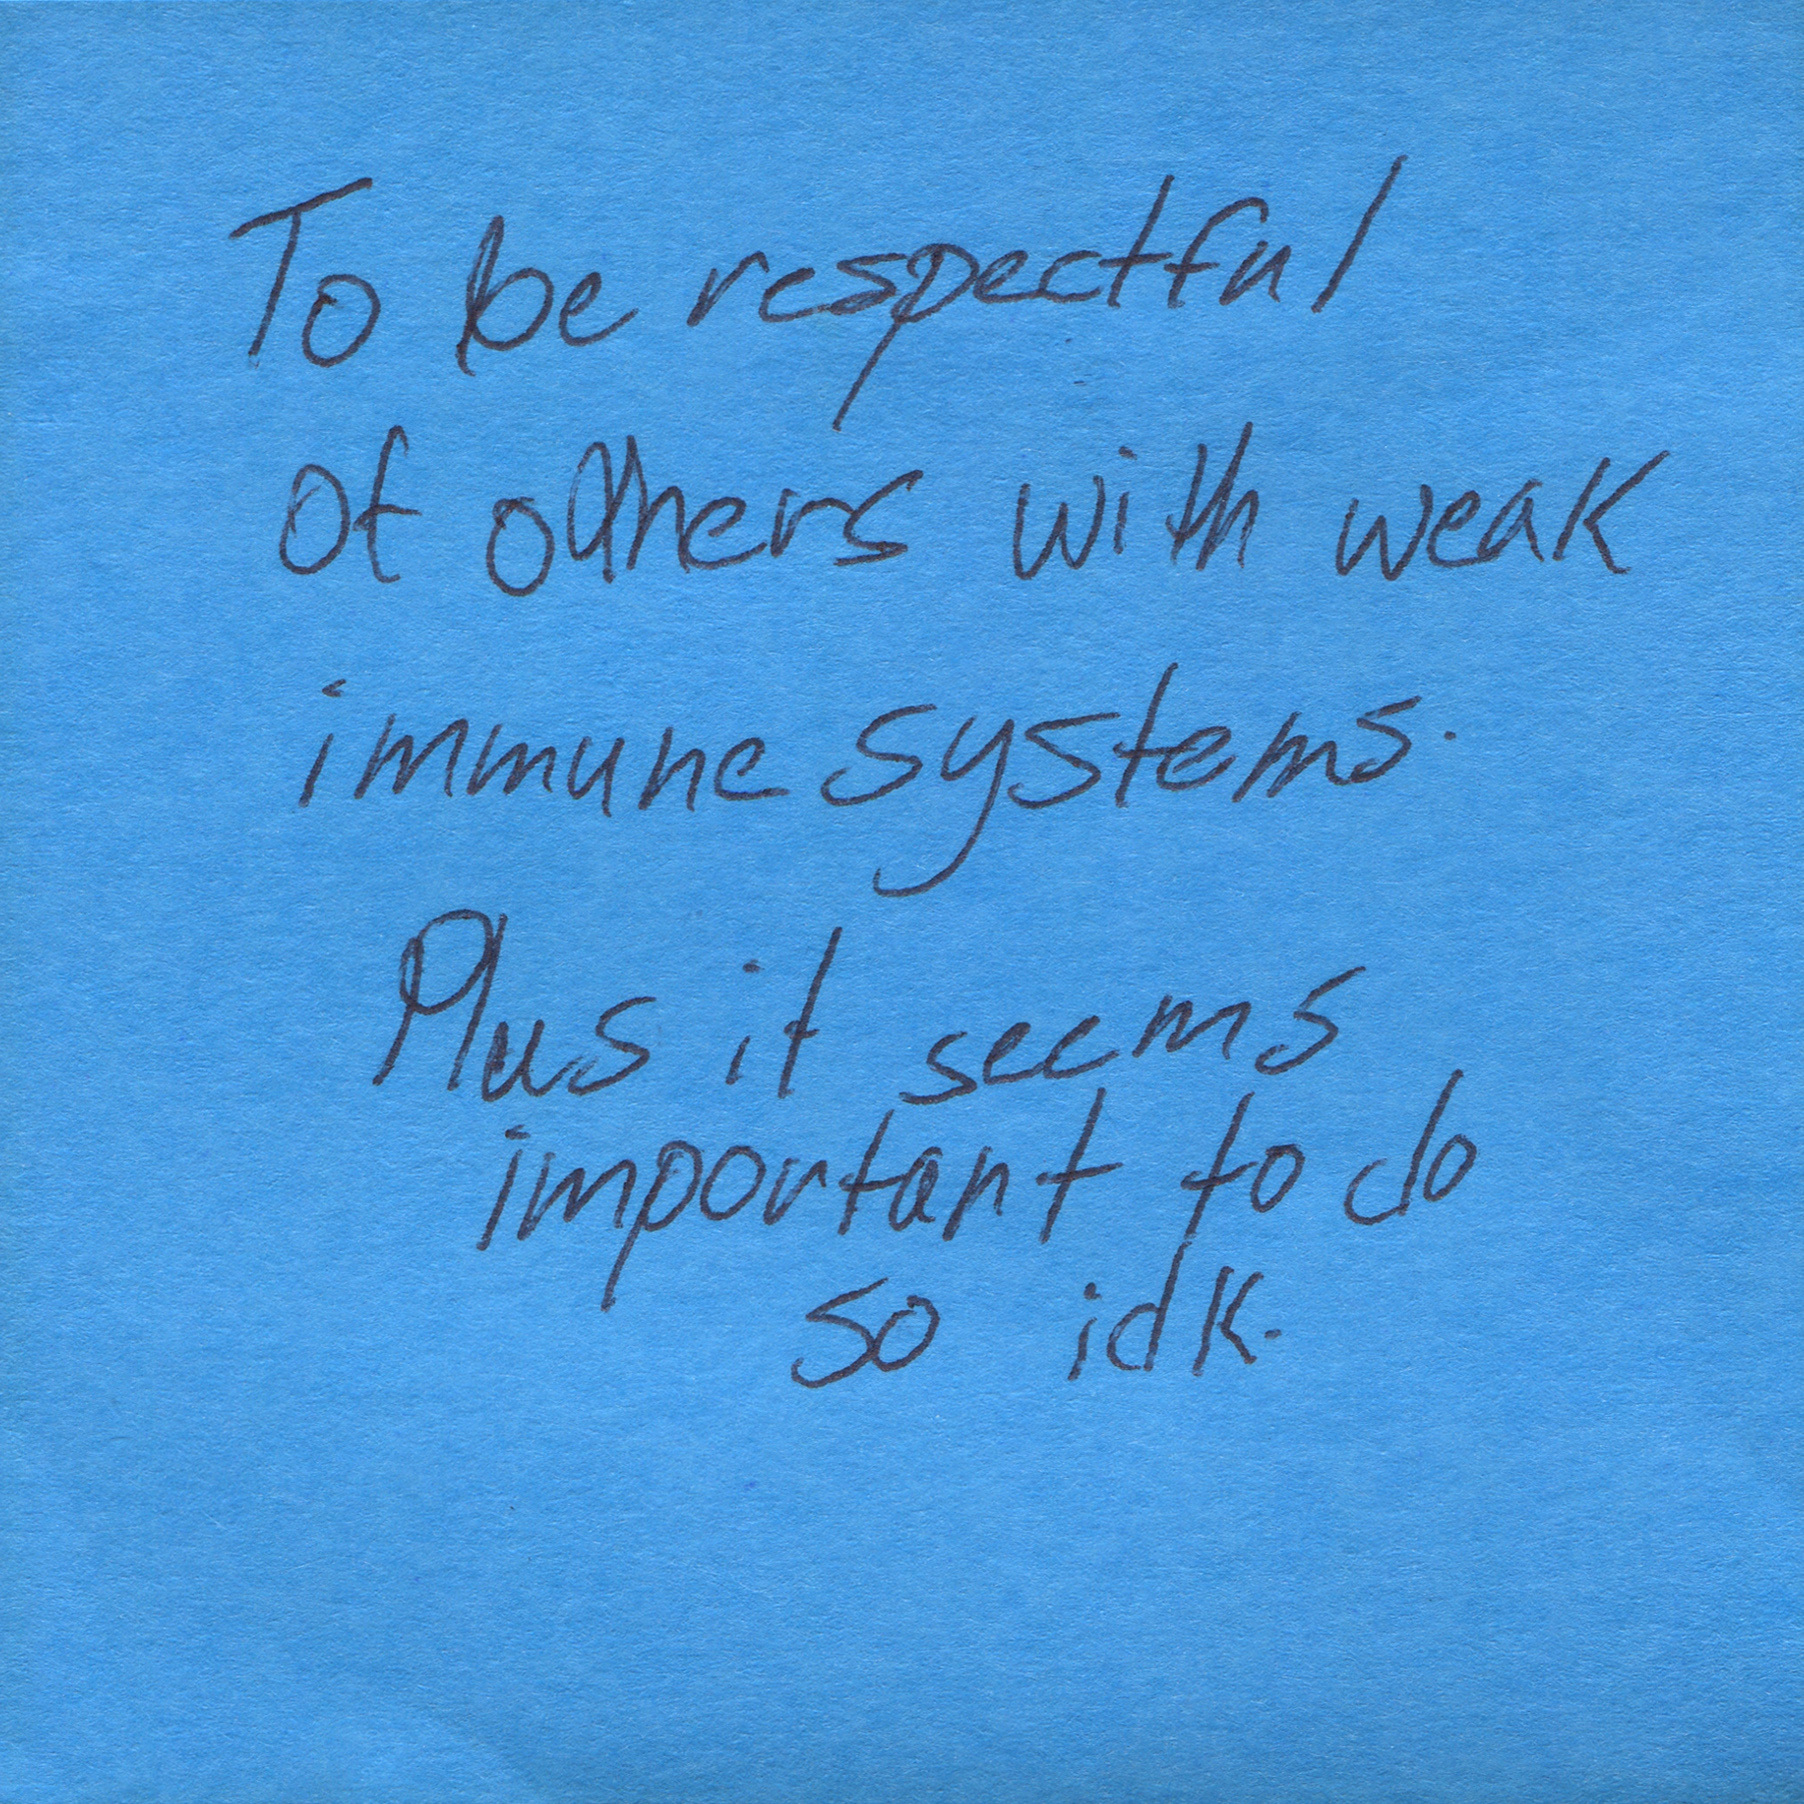 To be respectful
of others with weak
immune systems.
Plus it seems
important to do
so idk.